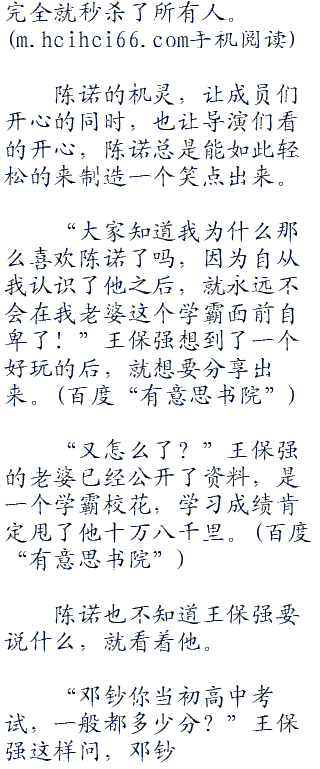 完全就秒杀了所有人。
(m.hcihci66.com手机阅读)
陈诺的机灵，让成员们
开心的同时，也让导演们看
的开心，陈诺总是能如此轻
松的来制造一个笑点出来。
“大家知道我为什么那
么喜欢陈诺了吗，因为自从
我认识了他之后，就永远不
会在我老婆这个学霸面前自
卑了！”王保强想到了一个
好玩的后，就想要分享出
来。(百度“有意思书院”)
“又怎么了？”王保强
的老婆已经公开了资料，是
一个学霸校花，学习成绩肯
定甩了他十万八千里。(百度
“有意思书院”)
陈诺也不知道王保强要
说什么，就看着他。
“邓钞你当初高中考
试，一般都多少分？”王保
强这样问，邓钞